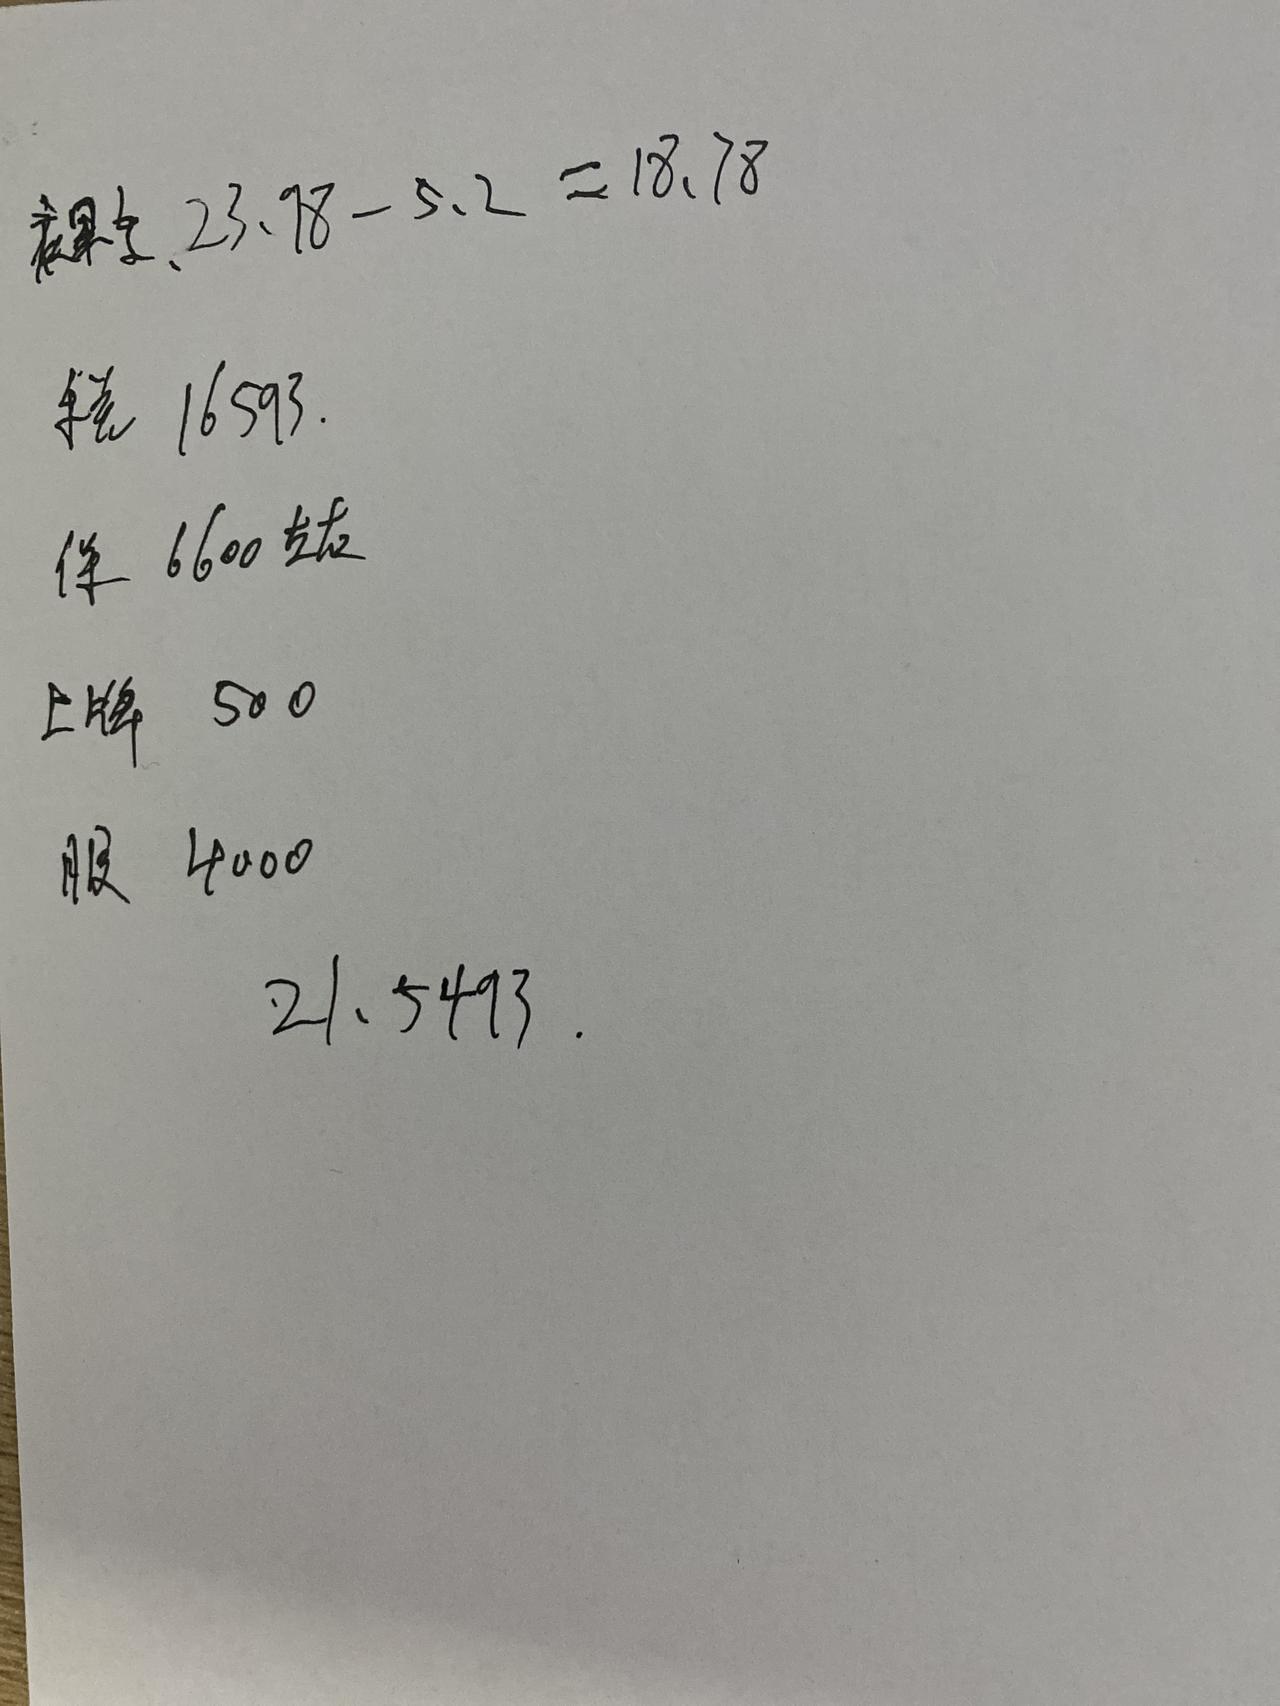 裸车、23.98-5.2=18.78
税 16593.
保 6600左右
上牌 500
服 4000
21.5493.